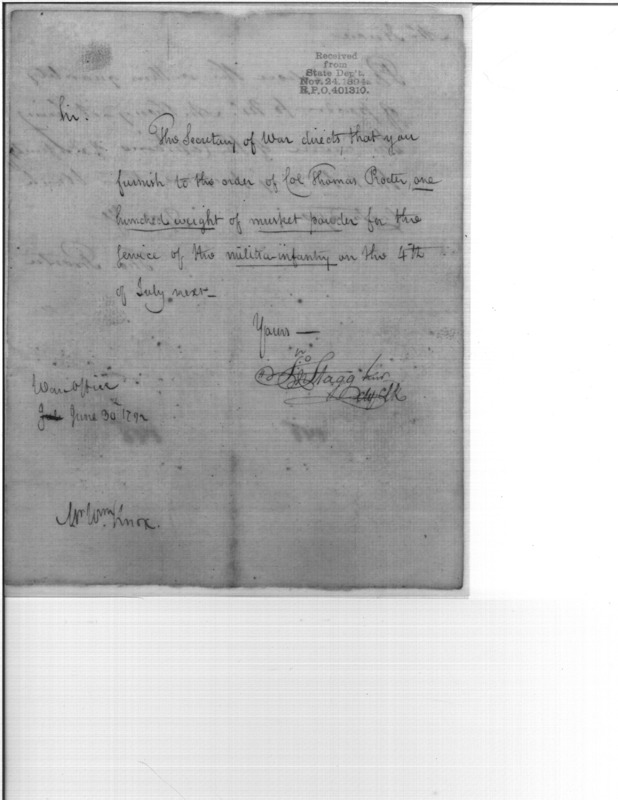 Received
from
State Dep't.
Nov. 24, 1894.
R.P.O. 401310.
Sir:
The Secretary of War directs, that you
furnish to the order of Col Thomas Procter, one
hundred weight of musket powder for the
service of the militia infantry on the 4th
of July next—
Yours —
Jno Stagg Junr
War office
June 30th 1792
Mr Wm Knox.